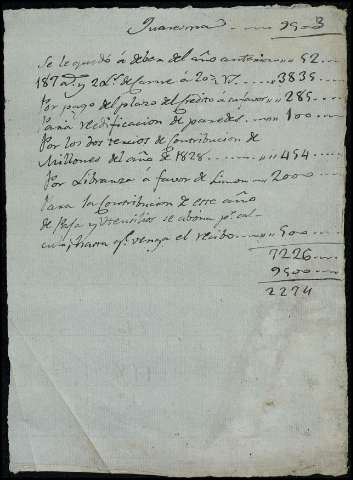 Quaresma ..... 9500
Se le quedó á deber del año anterior „ 52 ....
187 @.s y 2 l.s de carne á 20 ½ r.s .... 3835 ....
Por pago del plazo del credito á su favor „ 285 ....
Para redificacion de paredes .... 100 ....
Por los dos tercios de Contribucion de
Millones del año de 1828 .... „ 454 ....
Por Libranza á favor de Simon „ 2000 ....
Para la Contribucion de este año
de Paja y Utensilios se abona p.r al
hasta q.e venga el recibo .... „ 500 ....
7226 ....
9500 ....
2274